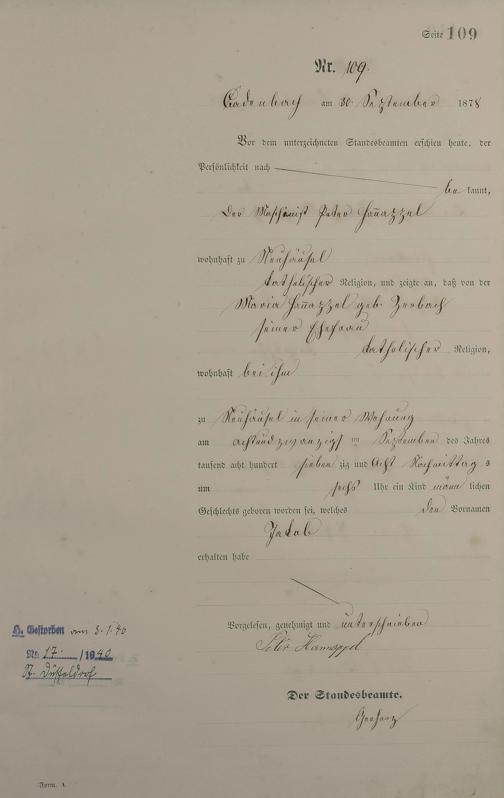 Seite 109
Nr. 109.
Cadenbach am 30. September 1878
Vor dem unterzeichneten Standesbeamten erschien heute, der
Persönlichkeit nach
be kannt,
Der Maschinist Peter Hanappel
wohnhaft zu Neuhäusel
katholischer Religion, und zeigte an, daß von der
Maria Hanappel geb. Zerbach
seiner Ehefrau
katholischer Religion,
wohnhaft bei ihm
zu Neuhäusel in seiner Wohnung
am achtundzwanzigsten September des Jahres
tausend acht hundert sieben zig und Acht Nachmittag s
um sechs Uhr ein Kind männ lichen
Geschlechts geboren worden sei, welches den Vornamen
Jakob
erhalten habe
Vorgelesen, genehmigt und unterschrieben
Peter Hannappel
Der Standesbeamte.
Gerharz
H. Gestorben am 3.1.40
Nr. 17 /1940
St. Düsseldorf
Form.